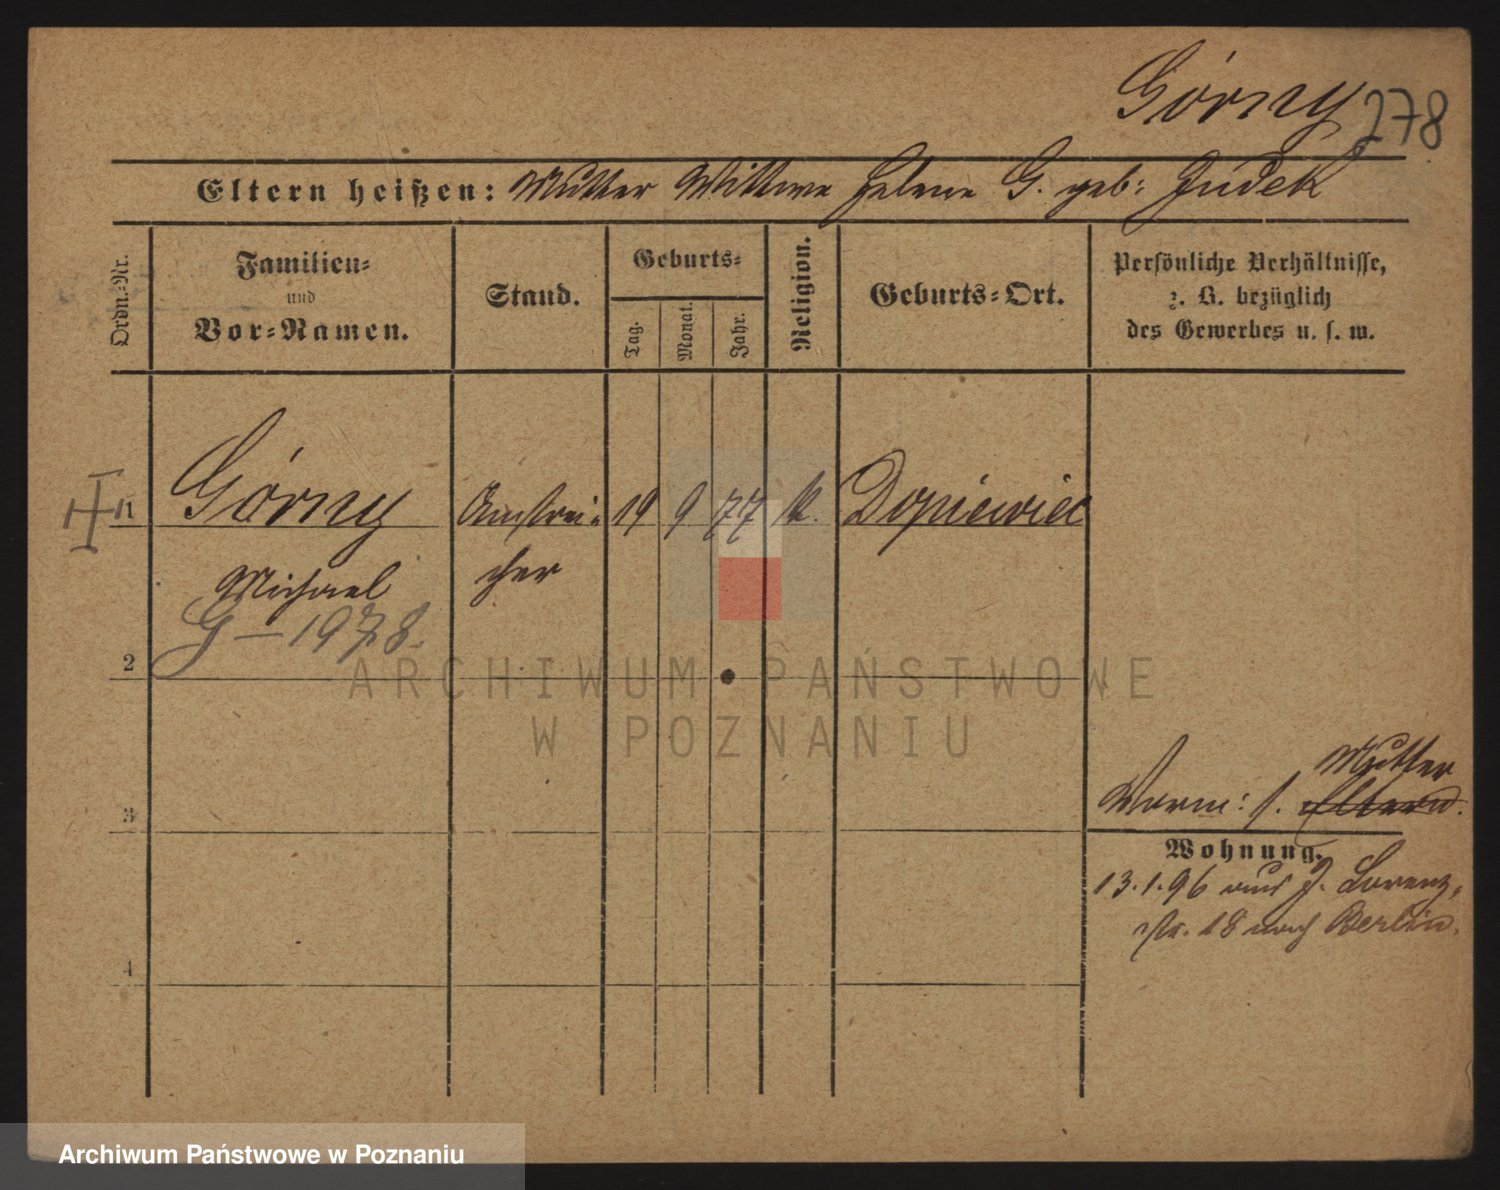 Górny
278
Eltern heißen: Mutter Wittwe Helene G. geb: Judek
Ordn.-Nr.
Familien-
und
Vor-Namen.
Stand.
Geburts-
Tag.
Monat.
Jahr.
Religion.
Geburts-Ort.
Persönliche Verhältnisse,
z. B. bezüglich
des Gewerbes u. s. w.
1 Górny Anstrei- 19 9 77 k. Dopiewiec
Michael cher
G – 1978.
2
ARCHIWUM PAŃSTWOWE
W POZNANIU
Mutter
3 Vorm: s. Eltern.
Wohnung.
13.1.96 aus J. Lorenz-
str. 18 nach Berlin.
4
Archiwum Państwowe w Poznaniu